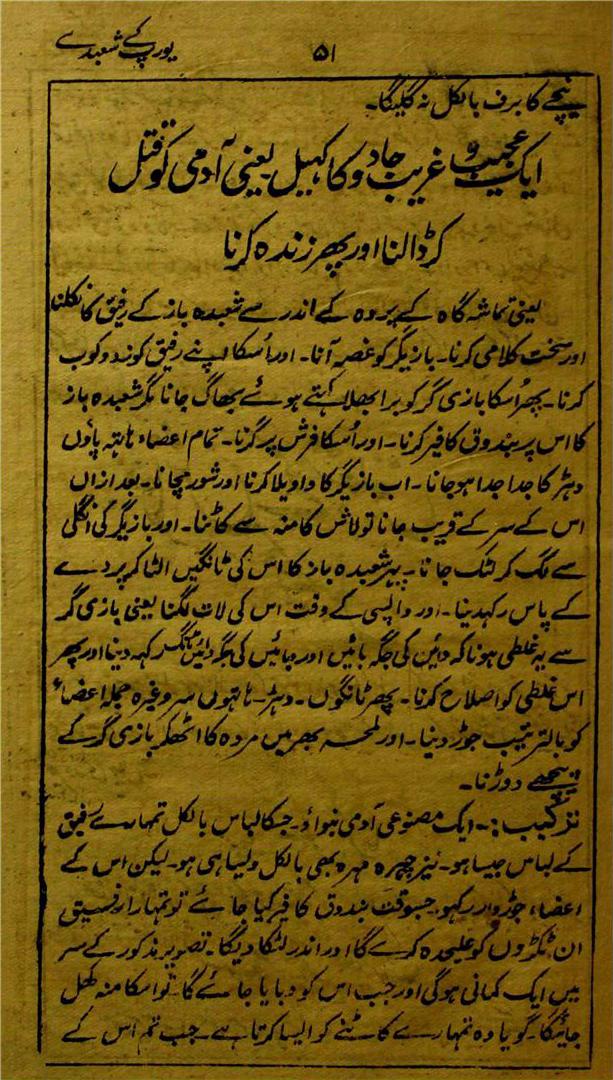 یورپ کے شعبدے
۵۱
نیچے کا برف بالکل نہ گلیگا۔
ایک عجیب و غریب جادو کا کھیل یعنی آدمی کو قتل
کر ڈالنا اور پھر زندہ کرنا
یعنی تماشہ گاہ کے پردہ کے اندر سے شعبدہ باز کے رفیق کا نکلنا
اور سخت کلامی کرنا۔ بازیگر کو غصہ آنا۔ اور اُسکا اپنے رفیق کو زدوکوب
کرنا۔ پھر اُسکا بازی گر کو برا بھلا کہتے ہوئے بھاگ جانا مگر شعبدہ باز
کا اس پر بندوق کا فیر کرنا۔ اور اُسکا فرش پر گرنا۔ تمام اعضاء ہاتھ پاؤں
دہڑ کا جدا جدا ہو جانا۔ اب بازیگر کا واویلا کرنا اور شور مچانا۔ بعد ازاں
اس کے سر کے قریب جانا تو لاش کا منہ سے کاٹنا۔ اور بازیگر کی انگلی
سے لگ کر لٹک جانا۔ پھر شعبدہ باز کا اس کی ٹانگیں الٹا کر پردے
کے پاس رکھدینا۔ اور واپسی کے وقت اس کی لات لگنا یعنی بازی گر
سے یہ غلطی ہونا کہ دائن کی جگہ بائیں اور بائیں کی جگہ دائیں ٹانگ رکہہ دینا اور پھر
اس غلطی کو اصلاح کرنا۔ پھر ٹانگوں۔ دہڑ۔ ہاتہوں سر وغیرہ جملہ اعضاء
کو بالترتیب جوڑ دینا۔ اور لمحہ بھر میں مردہ کا اٹھکر بازی گر کے
پیچھے دوڑنا۔
ترکیب:۔ ایک مصنوعی آدمی بنواؤ۔ جسکا لباس بالکل تمہارے رفیق
کے لباس جیسا ہو۔ نیز چہرہ مہرہ بھی بالکل ویسا ہی ہو۔ لیکن اس کے
اعضاء جوڑدار رکہو۔ جسوقت بندوق کا فیر کیا جائے تو تمہارا رفیق
ان ٹکڑوں کو علیحدہ کرے گا اور اندر لٹکا دیگا۔ تصویر مذکور کے سر
میں ایک کمانی ہوگی اور جب اس کو دبایا جائے گا۔ تو اسکا منہ کھل
جائیگا۔ گویا وہ تمہارے کاٹنے کو ایسا کرتا ہے۔ جب تم اس کے